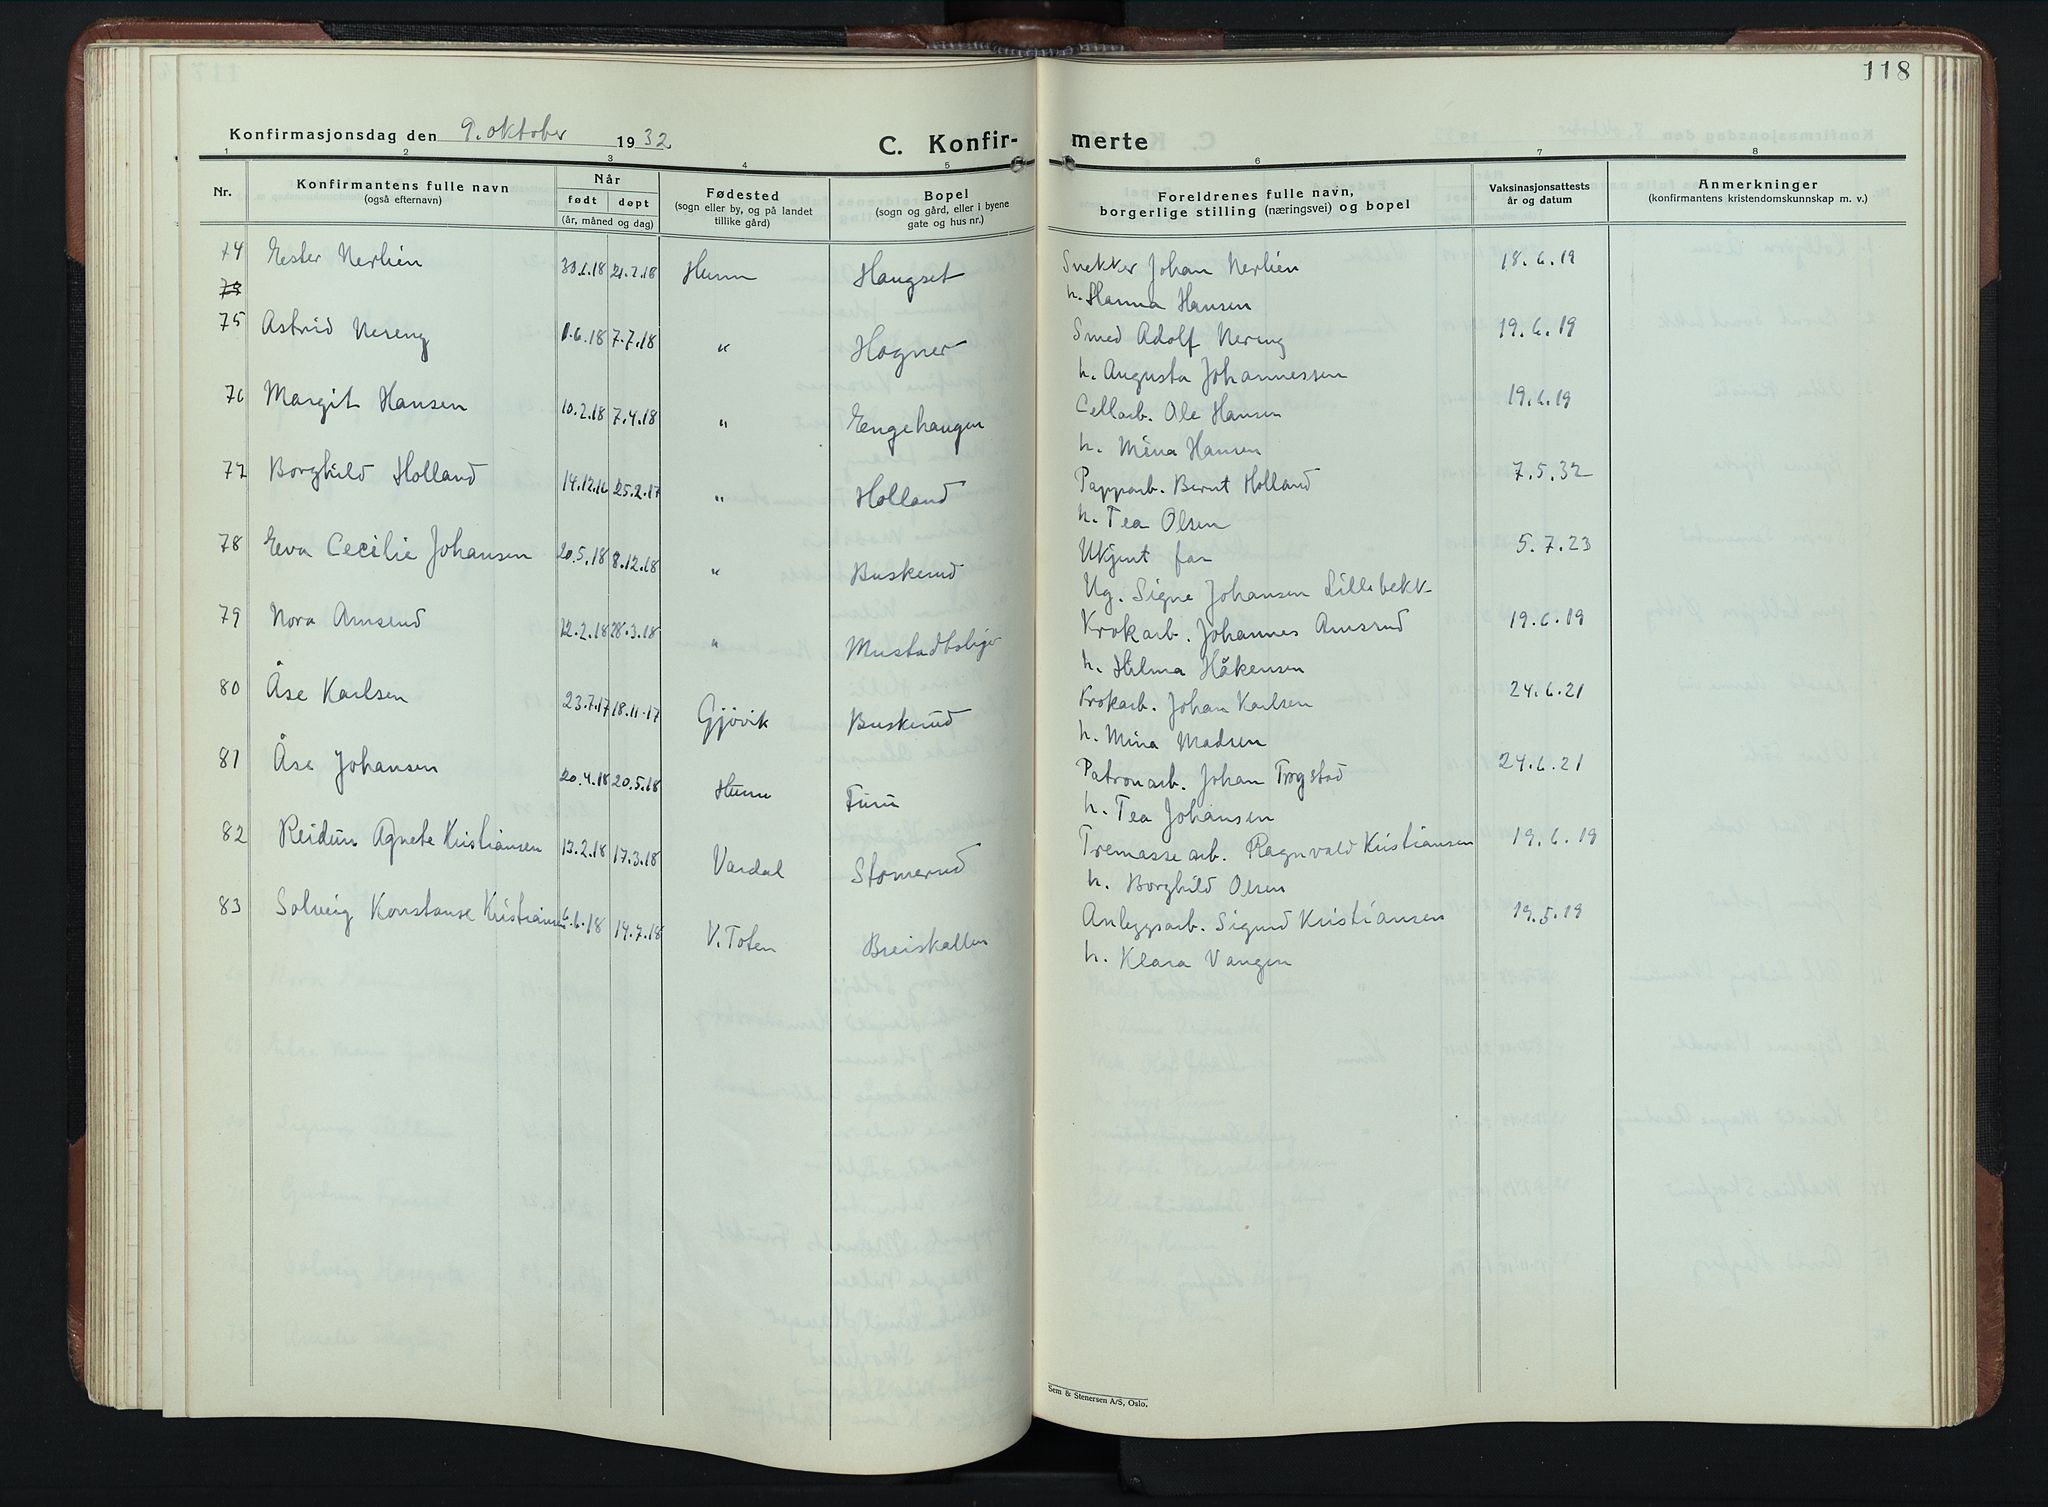 118
Konfirmasjonsdag den 9. oktober 1932 C. Konfir- merte
1 2 3 4 5 6 7 8
Nr. Konfirmantens fulle navn (også efternavn) Når født døpt (år, måned og dag) Fødested (sogn eller by, og på landet tillike gård) Bopel (sogn og gård, eller i byene gate og hus nr.) Foreldrenes fulle navn, borgerlige stilling (næringsvei) og bopel Vaksinasjonsattests år og datum Anmerkninger (konfirmantens kristendomskunnskap m. v.)
74 Ester Nerlien 30.1.18 21.7.18 Hunn Haugset Snekker Johan Nerlien 18.6.19
75
h. Hanna Hansen
75 Astrid Nereng 1.6.18 7.7.18 " Hogner Smed Adolf Nereng 19.6.19
h. Augusta Johannessen
76 Margit Hansen 10.2.18 7.4.18 " Engehaugen Cellarb. Ole Hansen 19.6.19
h. Mina Hansen
77 Borghild Holland 14.12.16 25.2.17 " Holland Papparb. Bernt Holland 7.5.32
h. Tea Olsen
78 Eva Cecilie Johansen 20.5.18 8.12.18 " Buskerud Ukjent far 5.7.23
Ug. Signe Johansen Lillebekk
79 Nora Amsrud 22.2.18 28.3.18 " Mustadboliger Krokarb. Johannes Amsrud 19.6.19
h. Hilma Håkensen
80 Åse Karlsen 23.7.17 18.11.17 Gjøvik Buskerud Krokarb. Johan Karlsen 24.6.21
h. Mina Madsen
81 Åse Johansen 20.4.18 20.5.18 Hunn Furu Patronarb. Johan Trogstad 24.6.21
h. Tea Johansen
82 Reidun Agnete Kristiansen 13.2.18 17.3.18 Vardal Stomerud Tremasse arb. Ragnvald Kristiansen 19.6.19
h. Borghild Olsen
83 Solveig Konstanse Kristiansen 6.6.18 14.7.18 V. Toten Breiskallen Anleggsarb. Sigurd Kristiansen 19.5.19
h. Klara Vangen
Sem & Stenersen A/S, Oslo.